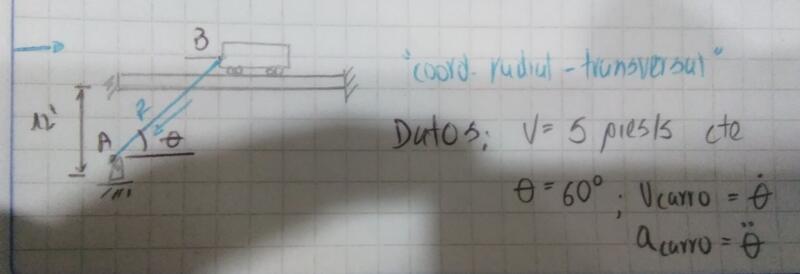 B
"coord. radial - transversal"
12'
r
A
θ
Datos; V= 5 pies/s cte
θ = 60° ; Vcarro = θ̇
acarro = θ̈